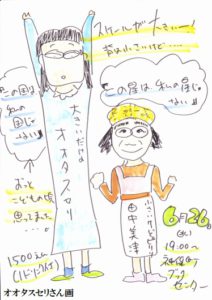 スケールが大きいー!
背は小さいけど……
この国は
私の
国じゃ
ない!!
この星は、私の星じゃ
ない!!
大きいだけよ
オオタスセリ
小さいけどっ
田中美津
おっと
こどもの頃
思ってました…
1500円
(1ドリンク付)
6月26日
(水)
19:00〜
神保町
ブック
センター
オオタスセリさん画